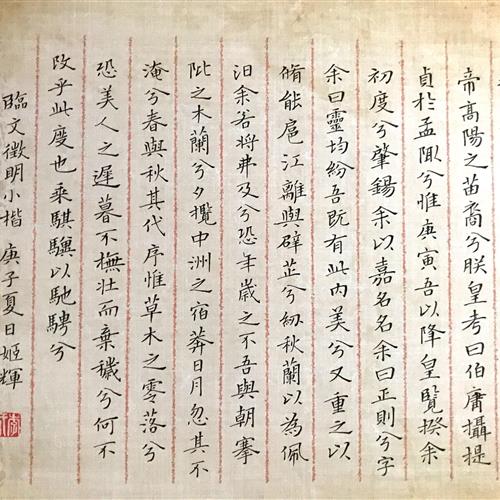 帝高陽之苗裔兮朕皇考曰伯庸攝提
貞於孟陬兮惟庚寅吾以降皇覽揆余
初度兮肇錫余以嘉名名余曰正則兮字
余曰靈均紛吾既有此內美兮又重之以
脩能扈江離與辟芷兮紉秋蘭以為佩
汩余若將弗及兮恐年歲之不吾與朝搴
阰之木蘭兮夕攬中洲之宿莽日月忽其不
淹兮春與秋其代序惟草木之零落兮
恐美人之遲暮不撫壯而棄穢兮何不
改乎此度也乘騏驥以馳騁兮
臨文徵明小楷 庚子夏日姬輝